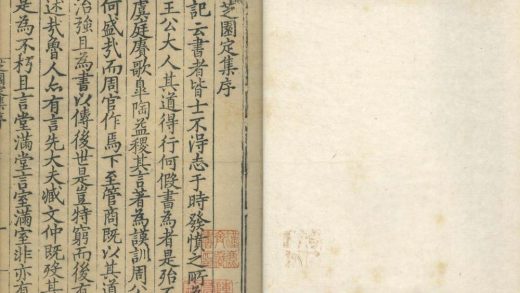 芝園定集序
記云書者皆士不得志于時發憤之所為
王公大人其道得行何假書為者是殆不
虞庭賡歌皐陶益稷其言著為謨訓周公
何盛㢤而周官作焉下至管商既以其道
治強且為書以傳後世是豈特窮而後有
述㢤魯人亦有言先大夫臧文仲既殁其
是為不朽且言堂滿堂言室滿室非亦有